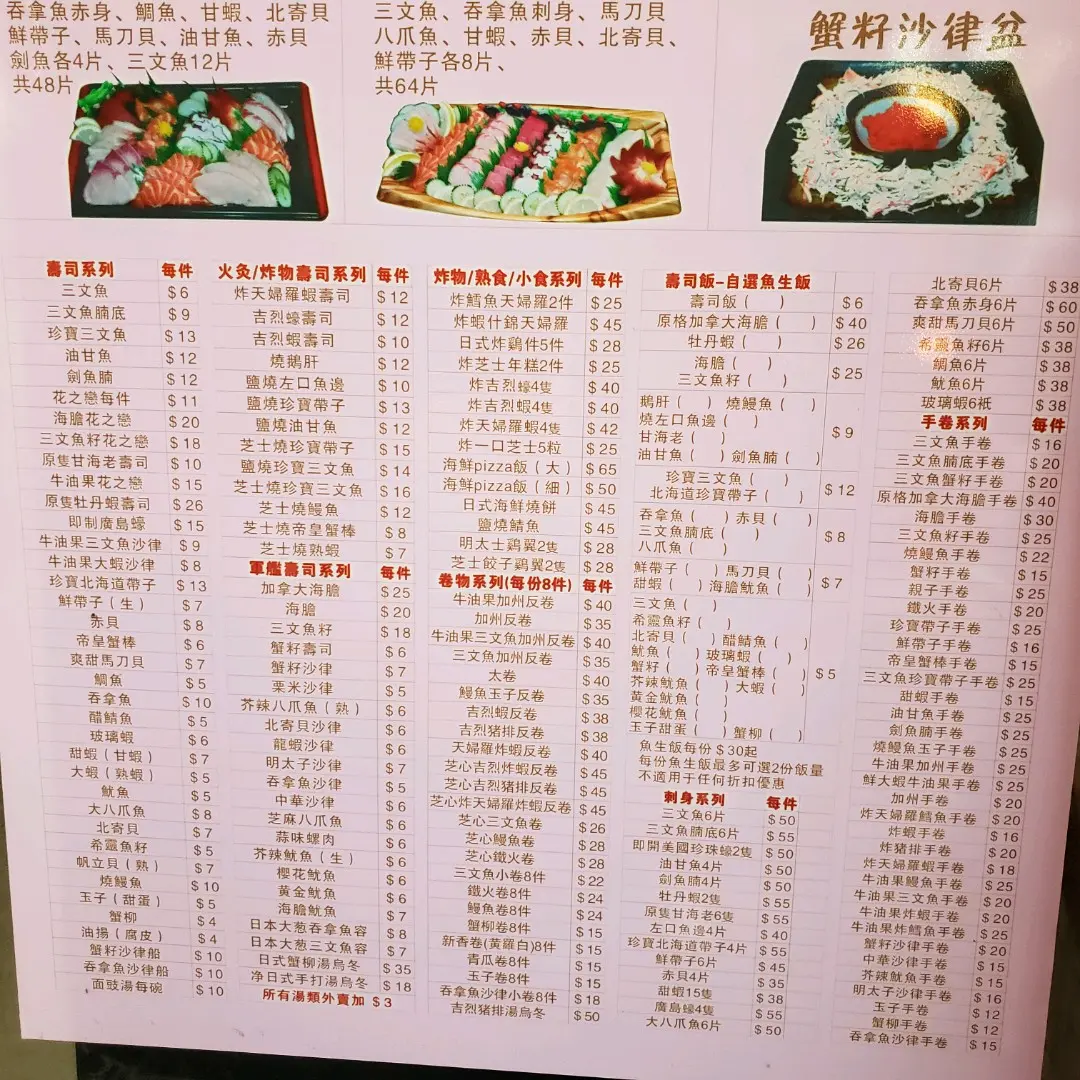 吞拿魚赤身、鯛魚、甘蝦、北寄貝
鮮帶子、馬刀貝、油甘魚、赤貝
劍魚各4片、三文魚12片
共48片
三文魚、吞拿魚刺身、馬刀貝
八爪魚、甘蝦、赤貝、北寄貝、
鮮帶子各8片、
共64片
蟹籽沙律盆
壽司系列 每件
三文魚 $6
三文魚腩底 $9
珍寶三文魚 $13
油甘魚 $12
劍魚腩 $12
花之戀每件 $11
海膽花之戀 $20
三文魚籽花之戀 $18
原隻甘海老壽司 $10
牛油果花之戀 $15
原隻牡丹蝦壽司 $26
即制廣島蠔 $15
牛油果三文魚沙律 $9
牛油果大蝦沙律 $8
珍寶北海道帶子 $13
鮮帶子（生） $7
赤貝 $8
帝皇蟹棒 $6
爽甜馬刀貝 $7
鯛魚 $5
吞拿魚 $10
醋鯖魚 $5
玻璃蝦 $6
甜蝦（甘蝦） $7
大蝦（熟蝦） $5
魷魚 $5
大八爪魚 $8
北寄貝 $7
希靈魚籽 $5
帆立貝（熟） $7
燒鰻魚 $10
玉子（甜蛋） $5
蟹柳 $4
油揚（腐皮） $4
蟹籽沙律船 $10
吞拿魚沙律船 $10
面豉湯每碗 $10
火灸/炸物壽司系列 每件
炸天婦羅蝦壽司 $12
吉烈蠔壽司 $12
吉烈蝦壽司 $10
燒鵝肝 $12
鹽燒左口魚邊 $10
鹽燒珍寶帶子 $13
鹽燒油甘魚 $12
芝士燒珍寶帶子 $15
鹽燒珍寶三文魚 $14
芝士燒珍寶三文魚 $16
芝士燒鰻魚 $12
芝士燒帝皇蟹棒 $8
芝士燒熟蝦 $7
軍艦壽司系列 每件
加拿大海膽 $25
海膽 $20
三文魚籽 $18
蟹籽壽司 $6
蟹籽沙律 $7
粟米沙律 $5
芥辣八爪魚（熟） $6
北寄貝沙律 $6
龍蝦沙律 $6
明太子沙律 $7
吞拿魚沙律 $5
中華沙律 $6
芝麻八爪魚 $6
蒜味螺肉 $6
芥辣魷魚（生） $6
櫻花魷魚 $6
黃金魷魚 $6
海膽魷魚 $7
日本大葱吞拿魚容 $8
日本大葱三文魚容 $7
日式蟹柳湯烏冬 $35
净日式手打湯烏冬 $18
所有湯類外賣加 $3
炸物/熟食/小食系列 每件
炸鱈魚天婦羅2件 $25
炸蝦什錦天婦羅 $45
日式炸鷄件5件 $28
炸芝士年糕2件 $25
炸吉烈蠔4隻 $40
炸吉烈蝦4隻 $40
炸天婦羅蝦4隻 $42
炸一口芝士5粒 $25
海鮮pizza飯（大） $65
海鮮pizza飯（細） $50
日式海鮮燒餅 $45
鹽燒鯖魚 $45
明太士鷄翼2隻 $28
芝士餃子鷄翼2隻 $28
卷物系列(每份8件) 每件
牛油果加州反卷 $40
加州反卷 $35
牛油果三文魚加州反卷 $40
三文魚加州反卷 $35
太卷 $40
鰻魚玉子反卷 $35
吉烈蝦反卷 $38
吉烈猪排反卷 $38
天婦羅炸蝦反卷 $40
芝心吉烈炸蝦反卷 $45
芝心吉烈猪排反卷 $45
芝心炸天婦羅炸蝦反卷 $45
芝心三文魚卷 $26
芝心鰻魚卷 $28
芝心鐵火卷 $28
三文魚小卷8件 $22
鐵火卷8件 $24
鰻魚卷8件 $24
蟹柳卷8件 $15
新香卷(黃羅白)8件 $15
青瓜卷8件 $15
玉子卷8件 $15
吞拿魚沙律小卷8件 $18
吉烈猪排湯烏冬 $50
壽司飯-自選魚生飯
壽司飯（ ） $6
原格加拿大海膽（ ） $40
牡丹蝦（ ） $26
海膽（ ）
三文魚籽（ ） $25
鵝肝（ ）燒鰻魚（ ）
燒左口魚邊（ ）
甘海老（ ） $9
油甘魚（ ）劍魚腩（ ）
珍寶三文魚（ ）
北海道珍寶帶子（ ） $12
吞拿魚（ ）赤貝（ ）
三文魚腩底（ ） $8
八爪魚（ ）
鮮帶子（ ）馬刀貝（ ）
甜蝦（ ）海膽魷魚（ ） $7
三文魚（ ）
希靈魚籽（ ）
北寄貝（ ）醋鯖魚（ ）
魷魚（ ）玻璃蝦（ ）
蟹籽（ ）帝皇蟹棒（ ） $5
芥辣魷魚（ ）大蝦（ ）
黃金魷魚（ ）
櫻花魷魚（ ）
玉子甜蛋（ ）蟹柳（ ）
魚生飯每份$30起
每份魚生飯最多可選2份飯量
不適用于任何折扣優惠
刺身系列 每件
三文魚6片 $50
三文魚腩底6片 $55
即開美國珍珠蠔2隻 $50
油甘魚4片 $50
劍魚腩4片 $50
牡丹蝦2隻 $55
原隻甘海老6隻 $55
左口魚邊4片 $40
珍寶北海道帶子4片 $55
鮮帶子6片 $45
赤貝4片 $35
甜蝦15隻 $38
廣島蠔4隻 $55
大八爪魚6片 $50
北寄貝6片 $38
吞拿魚赤身6片 $60
爽甜馬刀貝6片 $50
希靈魚籽6片 $38
鯛魚6片 $38
魷魚6片 $38
玻璃蝦6祇 $38
手卷系列 每件
三文魚手卷 $16
三文魚腩底手卷 $20
三文魚蟹籽手卷 $20
原格加拿大海膽手卷 $40
海膽手卷 $30
三文魚籽手卷 $25
燒鰻魚手卷 $22
蟹籽手卷 $15
親子手卷 $25
鐵火手卷 $20
珍寶帶子手卷 $25
鮮帶子手卷 $16
帝皇蟹棒手卷 $15
三文魚珍寶帶子手卷 $25
甜蝦手卷 $15
油甘魚手卷 $25
劍魚腩手卷 $25
燒鰻魚玉子手卷 $25
牛油果加州手卷 $25
鮮大蝦牛油果手卷 $25
加州手卷 $20
炸天婦羅鱈魚手卷 $20
炸蝦手卷 $16
炸猪排手卷 $20
炸天婦羅蝦手卷 $18
牛油果鰻魚手卷 $25
牛油果三文魚手卷 $20
牛油果炸蝦手卷 $20
牛油果炸鱈魚手卷 $25
蟹籽沙律手卷 $20
中華沙律手卷 $15
芥辣魷魚手卷 $15
明太子沙律手卷 $16
玉子手卷 $12
蟹柳手卷 $12
吞拿魚沙律手卷 $15